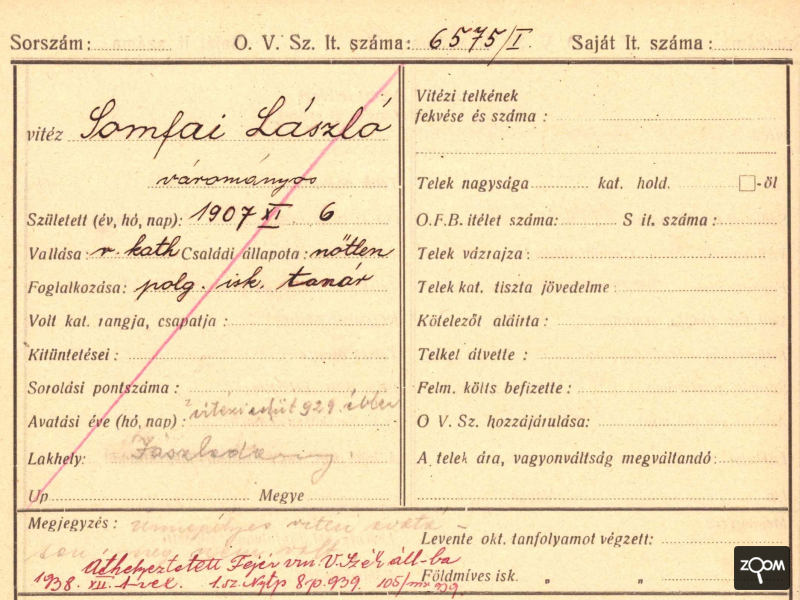 Sorszám: O. V. Sz. lt. száma: 6575/I. Saját lt. száma:
vitéz Somfai László
várományos
Született (év, hó, nap): 1907 XI. 6
Vallása: r. kath Családi állapota: nőtlen
Foglalkozása: polg. isk. tanár
Volt kat. rangja, csapatja:
Kitüntetései:
Sorolási pontszáma:
Avatási éve (hó, nap): vitézi esküt 929. évben
Lakhely: Jászladány.
Up. Megye
Vitézi telkének
fekvése és száma:
Telek nagysága kat. hold. □-öl
O.F.B. itélet száma: S it. száma:
Telek vázrajza:
Telek kat. tiszta jövedelme:
Kötelezőt aláirta:
Telket átvette:
Felm. költs befizette:
O V. Sz. hozzájárulása:
A telek ára, vagyonváltság megváltandó:
Megjegyzés: ünnepélyes vitézi avatá-
son még nem volt
Áthelyeztetett Fejér vm V. Szék áll-ba
1938. XII. 1-vel. 1. sz. Nytp 8 p. 939.
Levente okt. tanfolyamot végzett:
Földmíves isk. " "
ZOOM